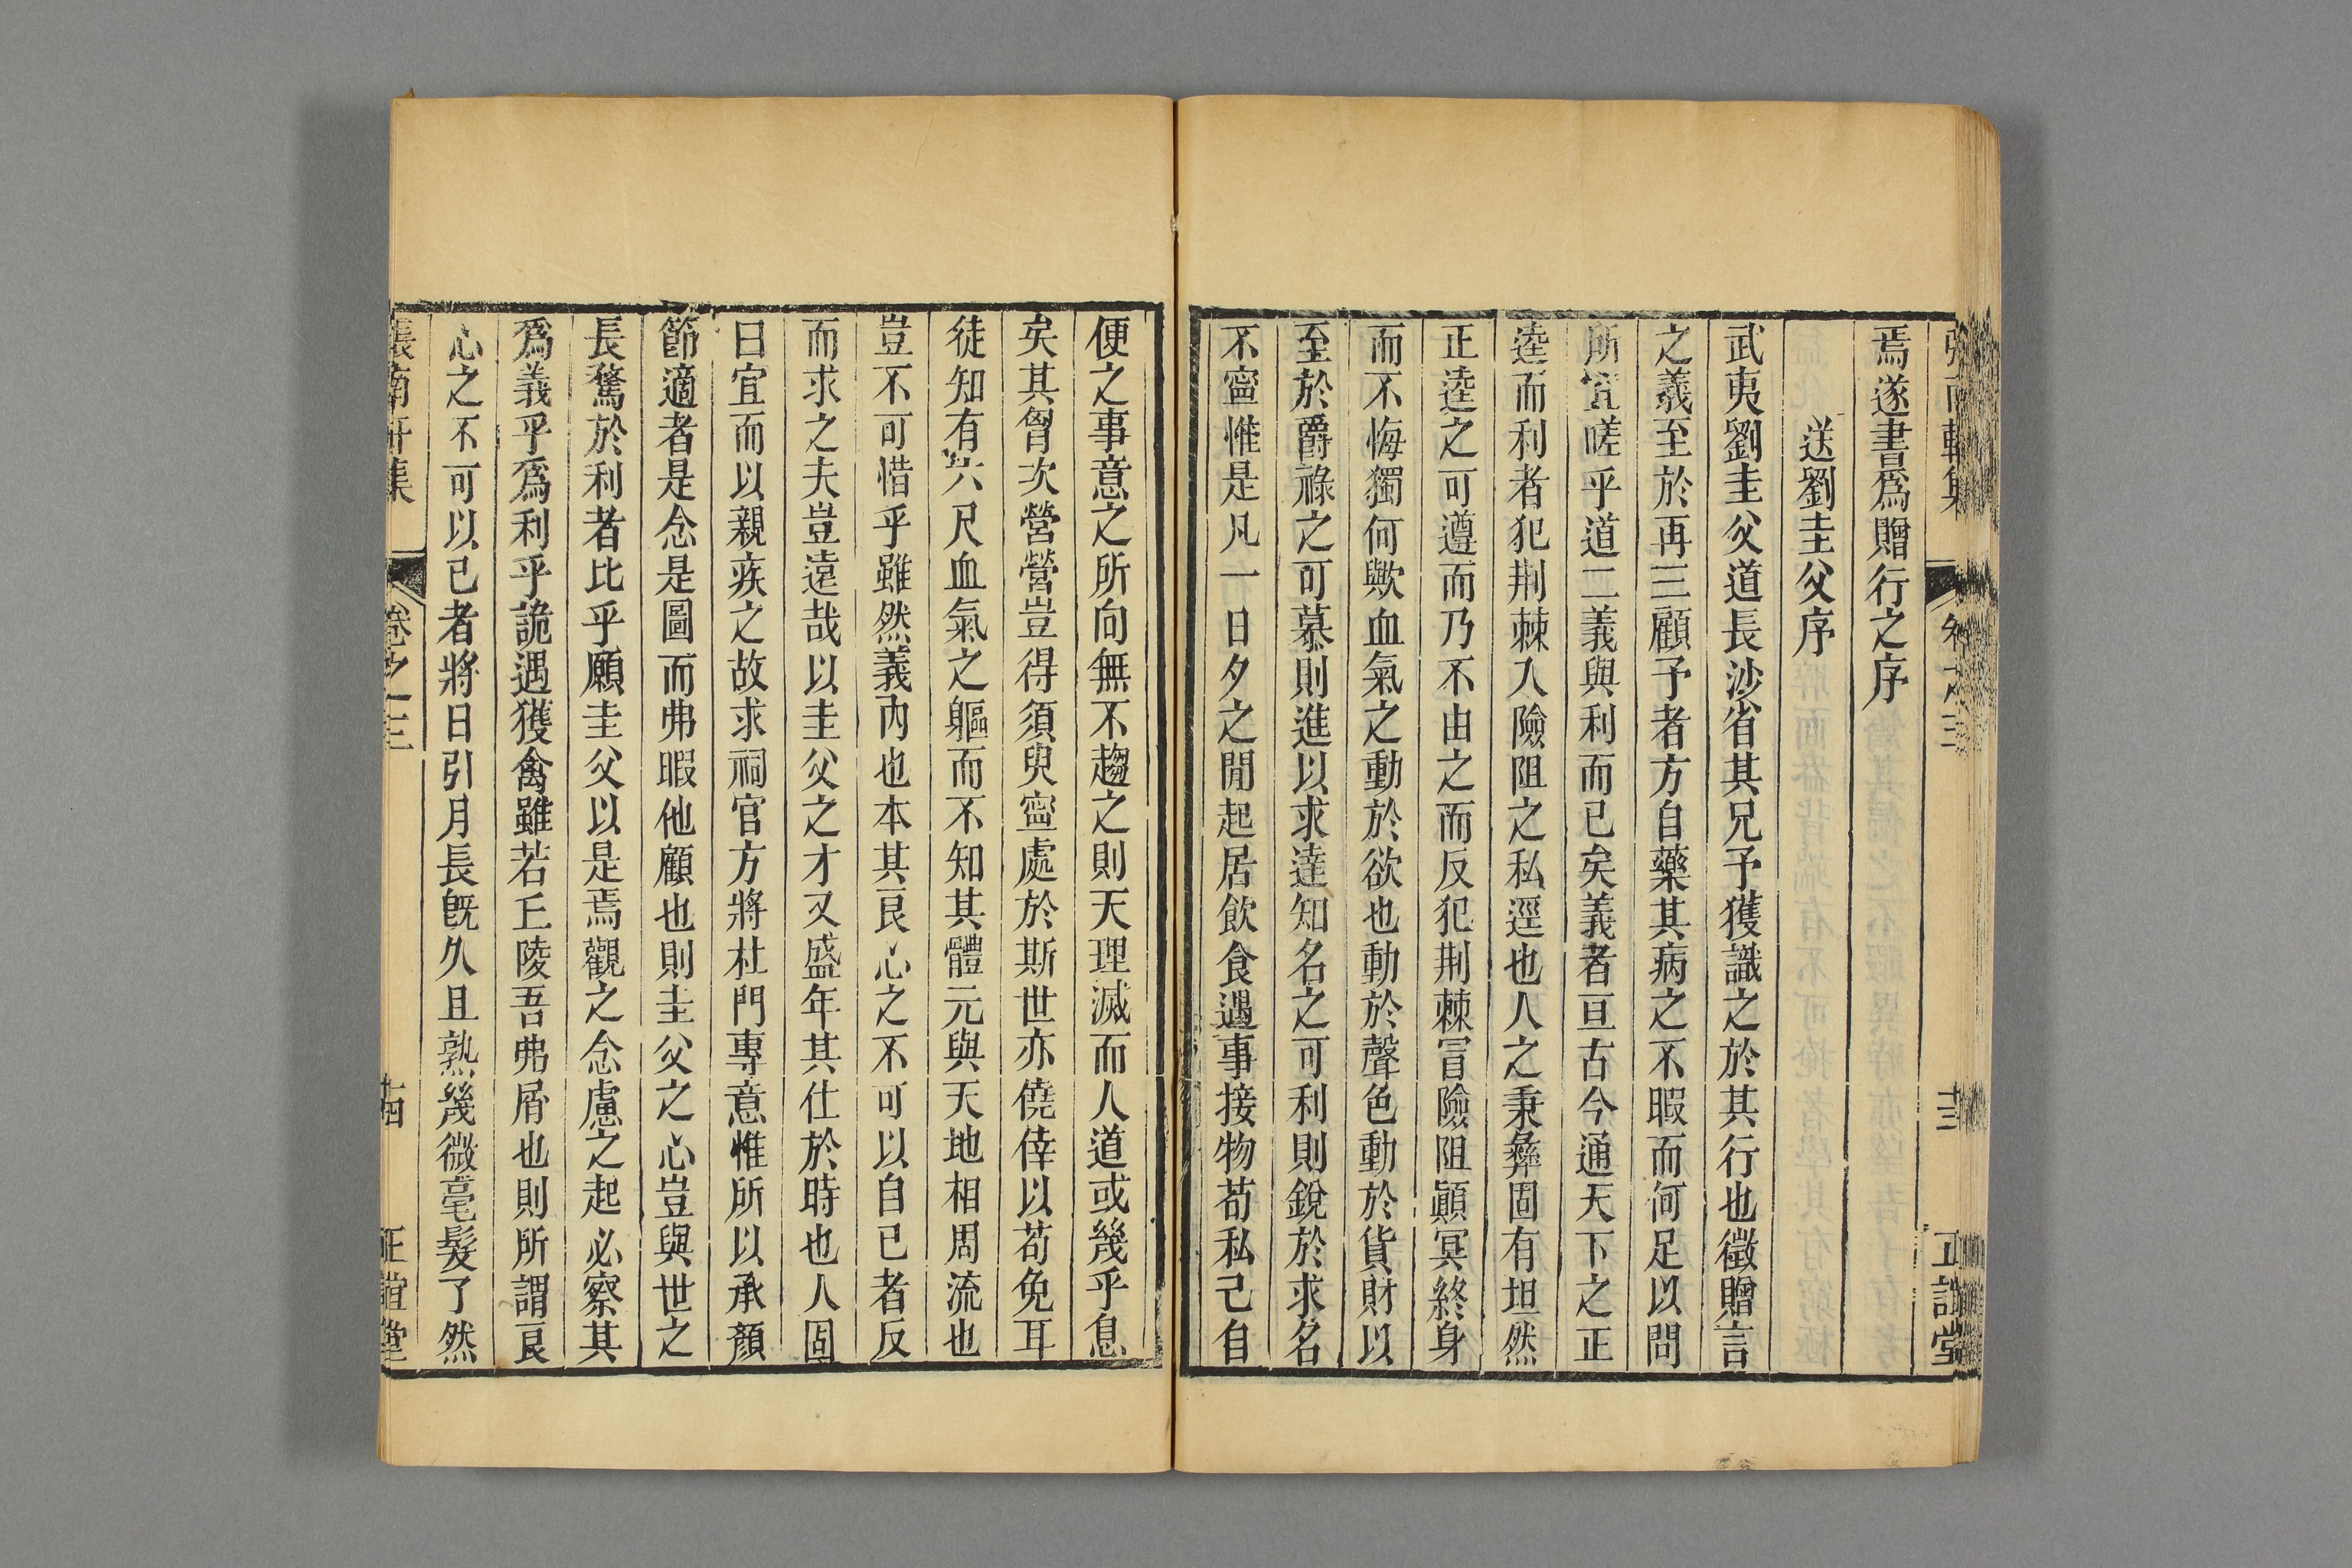 張南軒集 卷之三 十三 正誼堂
焉遂書爲贈行之序
送劉圭父序
武夷劉圭父道長沙省其兄予獲識之於其行也徵贈言
之義至於再三顧予者方自藥其病之不暇而何足以問
所宜嗟乎道二義與利而已矣義者亘古今通天下之正
逵而利者犯荆棘入險阻之私逕也人之秉彝固有坦然
正逵之可遵而乃不由之而反犯荆棘冒險阻顚冥終身
而不悔獨何歟血氣之動於欲也動於聲色動於貨財以
至於爵祿之可慕則進以求達知名之可利則銳於求名
不寧惟是凡一日夕之閒起居飮食遇事接物苟私己自
便之事意之所向無不趨之則天理滅而人道或幾乎息
矣其胷次營營豈得須臾寧處於斯世亦僥倖以苟免耳
徒知有六尺血氣之軀而不知其體元與天地相周流也
豈不可惜乎雖然義內也本其良心之不可以自已者反
而求之夫豈遠哉以圭父之才又盛年其仕於時也人固
曰宜而以親疾之故求祠官方將杜門專意惟所以承顏
節適者是念是圖而弗暇他顧也則圭父之心豈與世之
長騖於利者比乎願圭父以是焉觀之念慮之起必察其
爲義乎爲利乎詭遇獲禽雖若丘陵吾弗屑也則所謂良
心之不可以已者將日引月長旣久且熟幾微毫髮了然
張南軒集 卷之三 十四 正誼堂